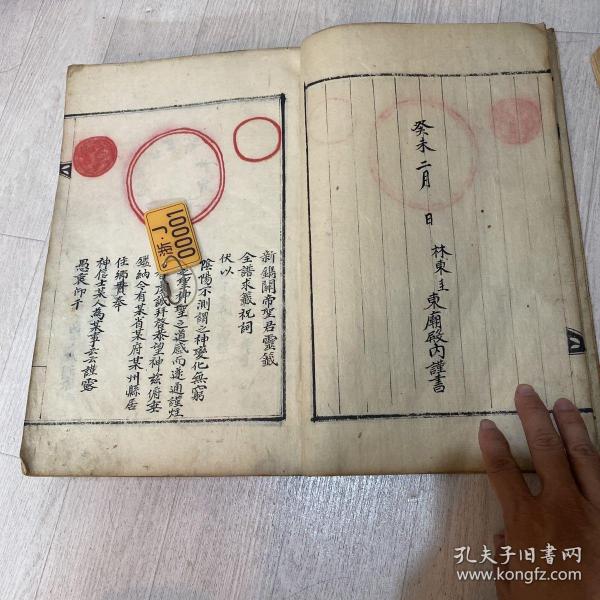 癸未二月 日
林東圭東廟殿內謹書
新鐫關帝聖君靈籤
全譜求籤祝詞
伏以
陰陽不測謂之神變化無窮
之聖帝聖之道感而遂通謹炷
誠拜啓恭望神慈俯垂
鑑納今有某省某府某州縣居
住鄉貫奉
神信士某人為某事云云謹露
愚衷仰干
J·斋
00001
孔夫子旧书网
www.kongfz.com